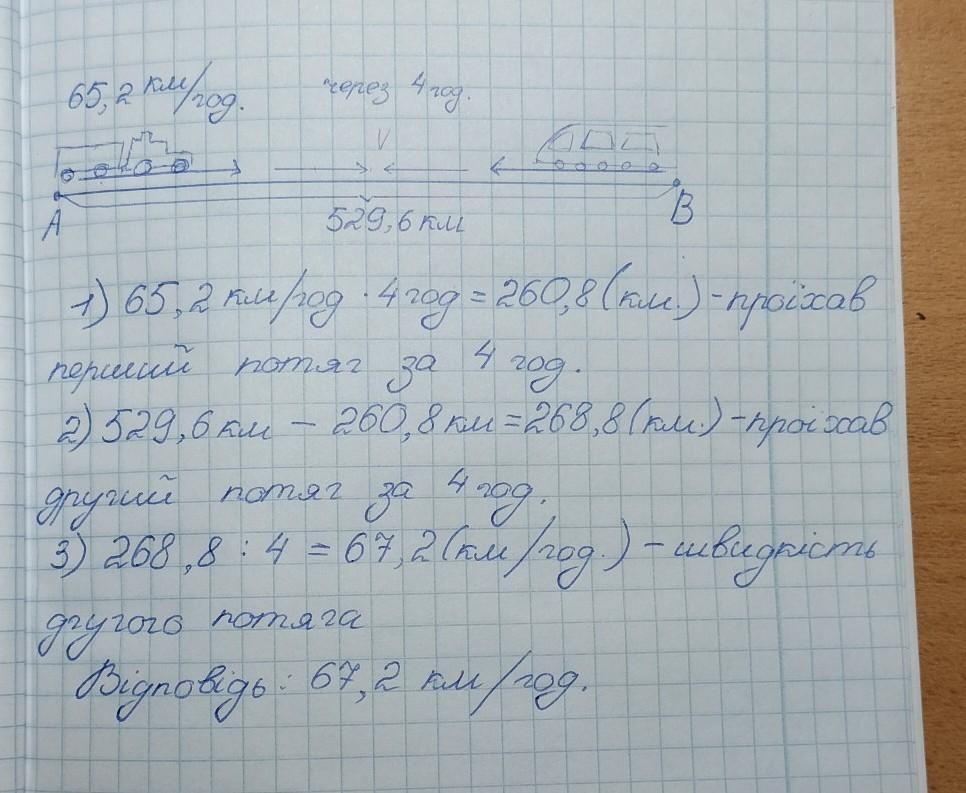 65,2 км/год. через 4 год.
V
A 529,6 км B
1) 65,2 км/год · 4 год = 260,8 (км.) - проїхав
перший потяг за 4 год.
2) 529,6 км - 260,8 км = 268,8 (км.) - проїхав
другий потяг за 4 год.
3) 268,8 : 4 = 67,2 (км/год.) - швидкість
другого потяга
Відповідь: 67,2 км/год.